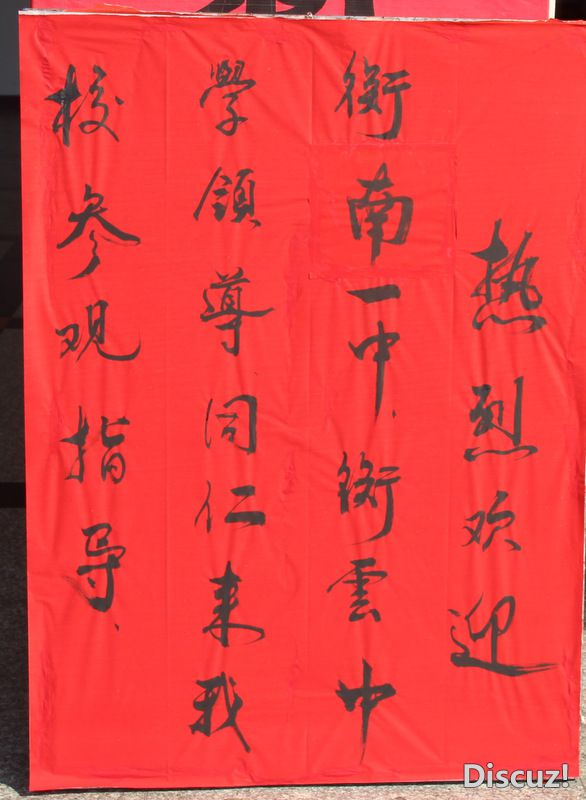 热烈欢迎
衡南一中、衡雲中
學領導同仁来我
校参观指导、
Discuz!